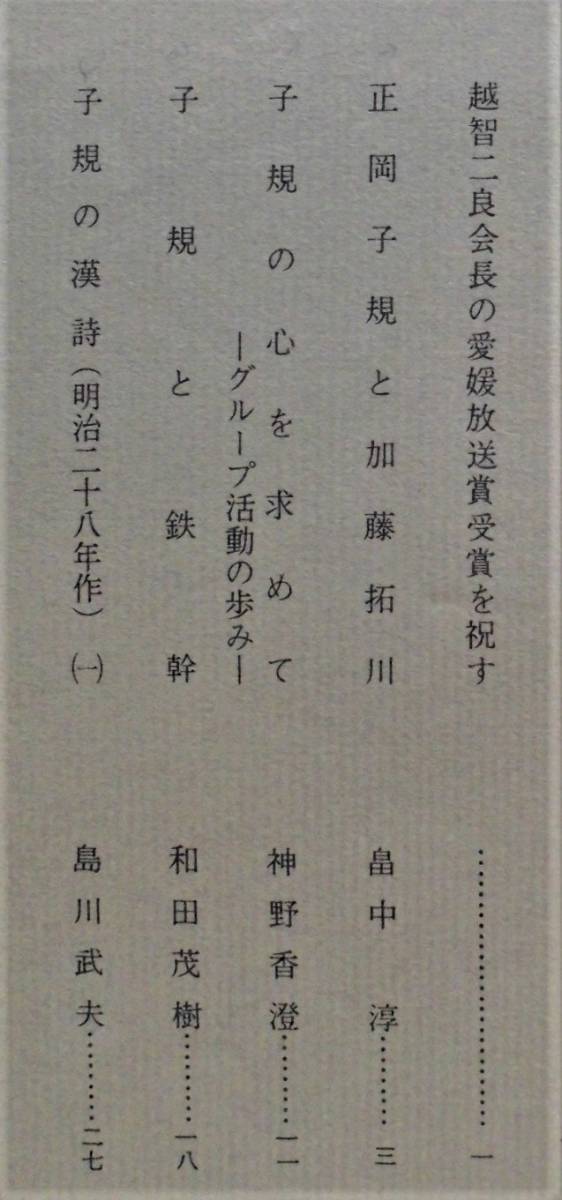 越智二良会長の愛媛放送賞受賞を祝す…………………………一
正岡子規と加藤拓川 畠中淳…………三
子規の心を求めて 神野香澄…………一一
―グループ活動の歩み―
子規と鉄幹 和田茂樹…………一八
子規の漢詩(明治二十八年作)㈠ 島川武夫…………二七